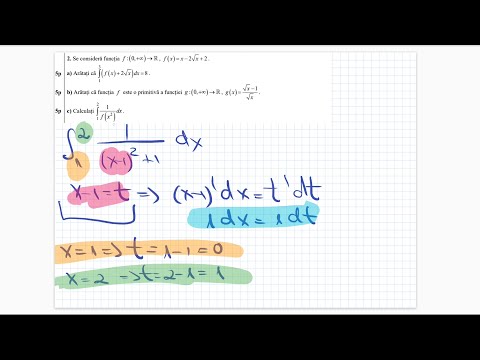 2. Se consideră funcția f : (0,+∞) → ℝ , f(x) = x − 2√x + 2 .
5p a) Arătați că ∫₁³ (f(x) + 2√x) dx = 8 .
5p b) Arătați că funcția f este o primitivă a funcției g : (0,+∞) → ℝ , g(x) = (√x − 1)/√x .
5p c) Calculați ∫₁² 1/f(x²) dx .
∫₁² 1/((x-1)² + 1) dx
x-1 = t => (x-1)' dx = t' dt
1 dx = 1 dt
x = 1 => t = 1-1 = 0
x = 2 => t = 2-1 = 1